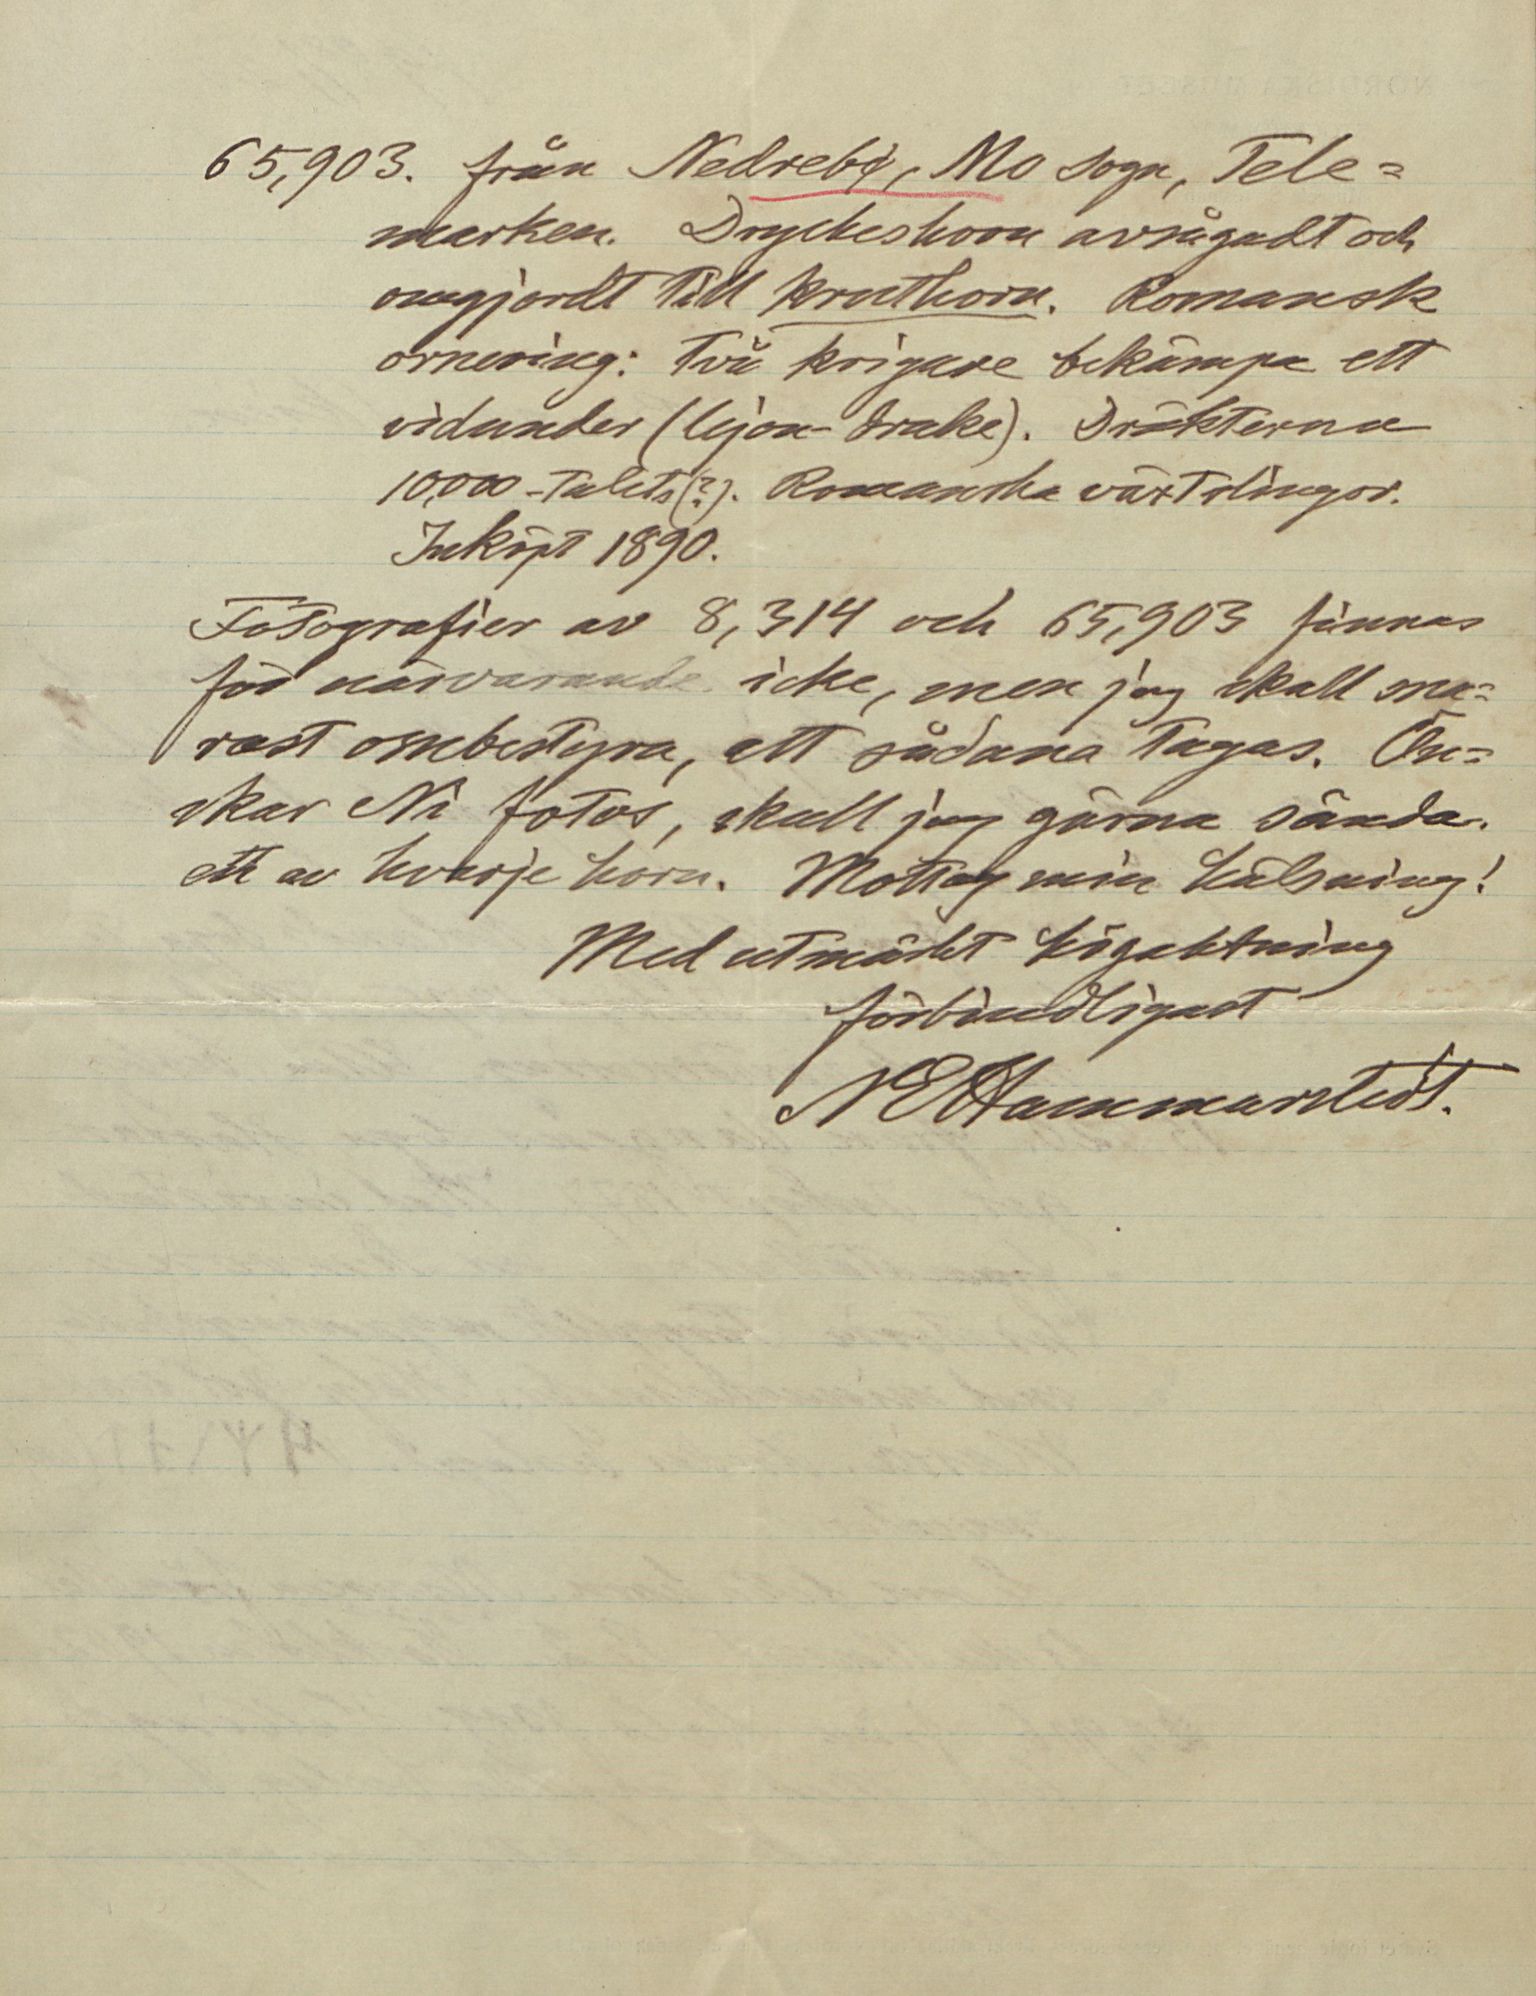 65,903. från Nedrebø, Mo sogn, Tele=
marken. Dryckeshorn avsågadt och
omgjordt till kruthorn. Romansk
ornering: Två krigare bekämpa ett
vidunder (lejon-drake). Dräkterna
10,000-talets(?). Romanska växtslingor.
Inköpt 1890.
Fotografier av 8,314 och 65,903 finnas
för närvarande icke, men jag skall sna=
rast ombestyra, att sådana tagas. Ön=
skar Ni fotos, skall jag gärna sända.
ett av hvarje horn. Mottag min hälsning!
Med utmärkt högaktning
förbindligast
NEHammarstedt.